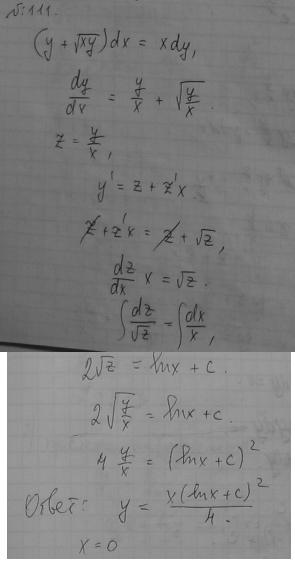 №111.
(y + √xy)dx = xdy,
dy/dx = y/x + √(y/x).
z = y/x,
y' = z + z'x.
z + z'x = z + √z,
dz/dx x = √z.
∫dz/√z = ∫dx/x,
2√z = lnx + c.
2√(y/x) = lnx + c.
4 y/x = (lnx + c)²
Ответ: y = x(lnx + c)²/4.
x = 0